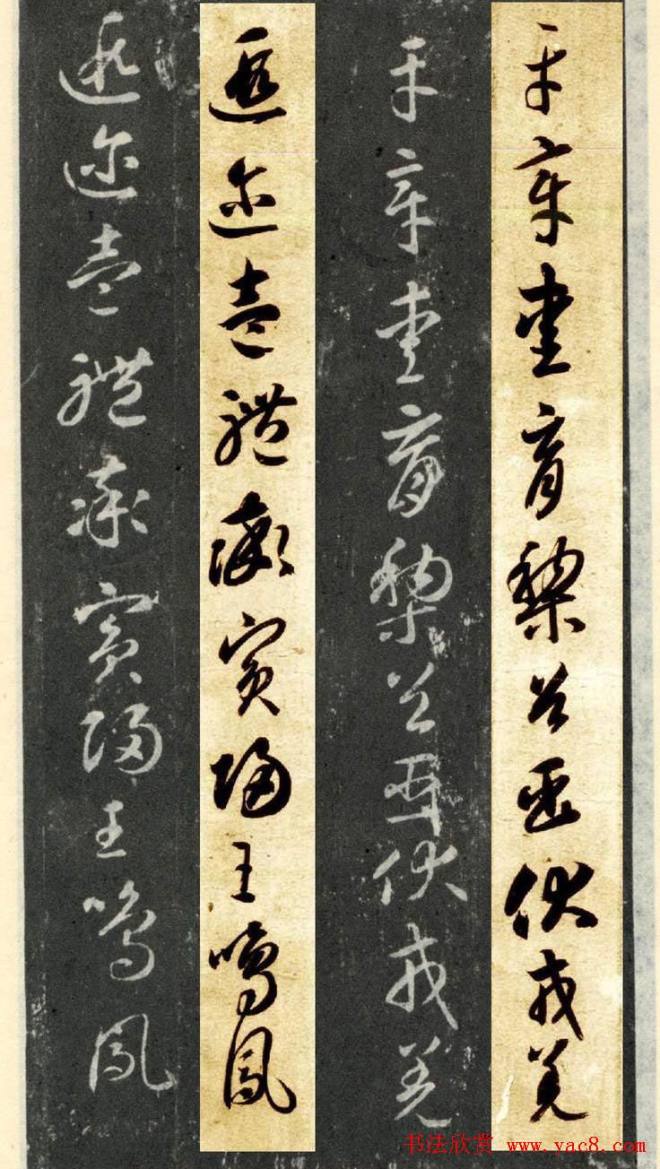 平章愛育黎首臣伏戎羌
平章愛育黎首臣伏戎羌
遐邇壹體率賓歸王鳴鳳
遐邇壹體率賓歸王鳴鳳
书法欣赏 www.yac8.com